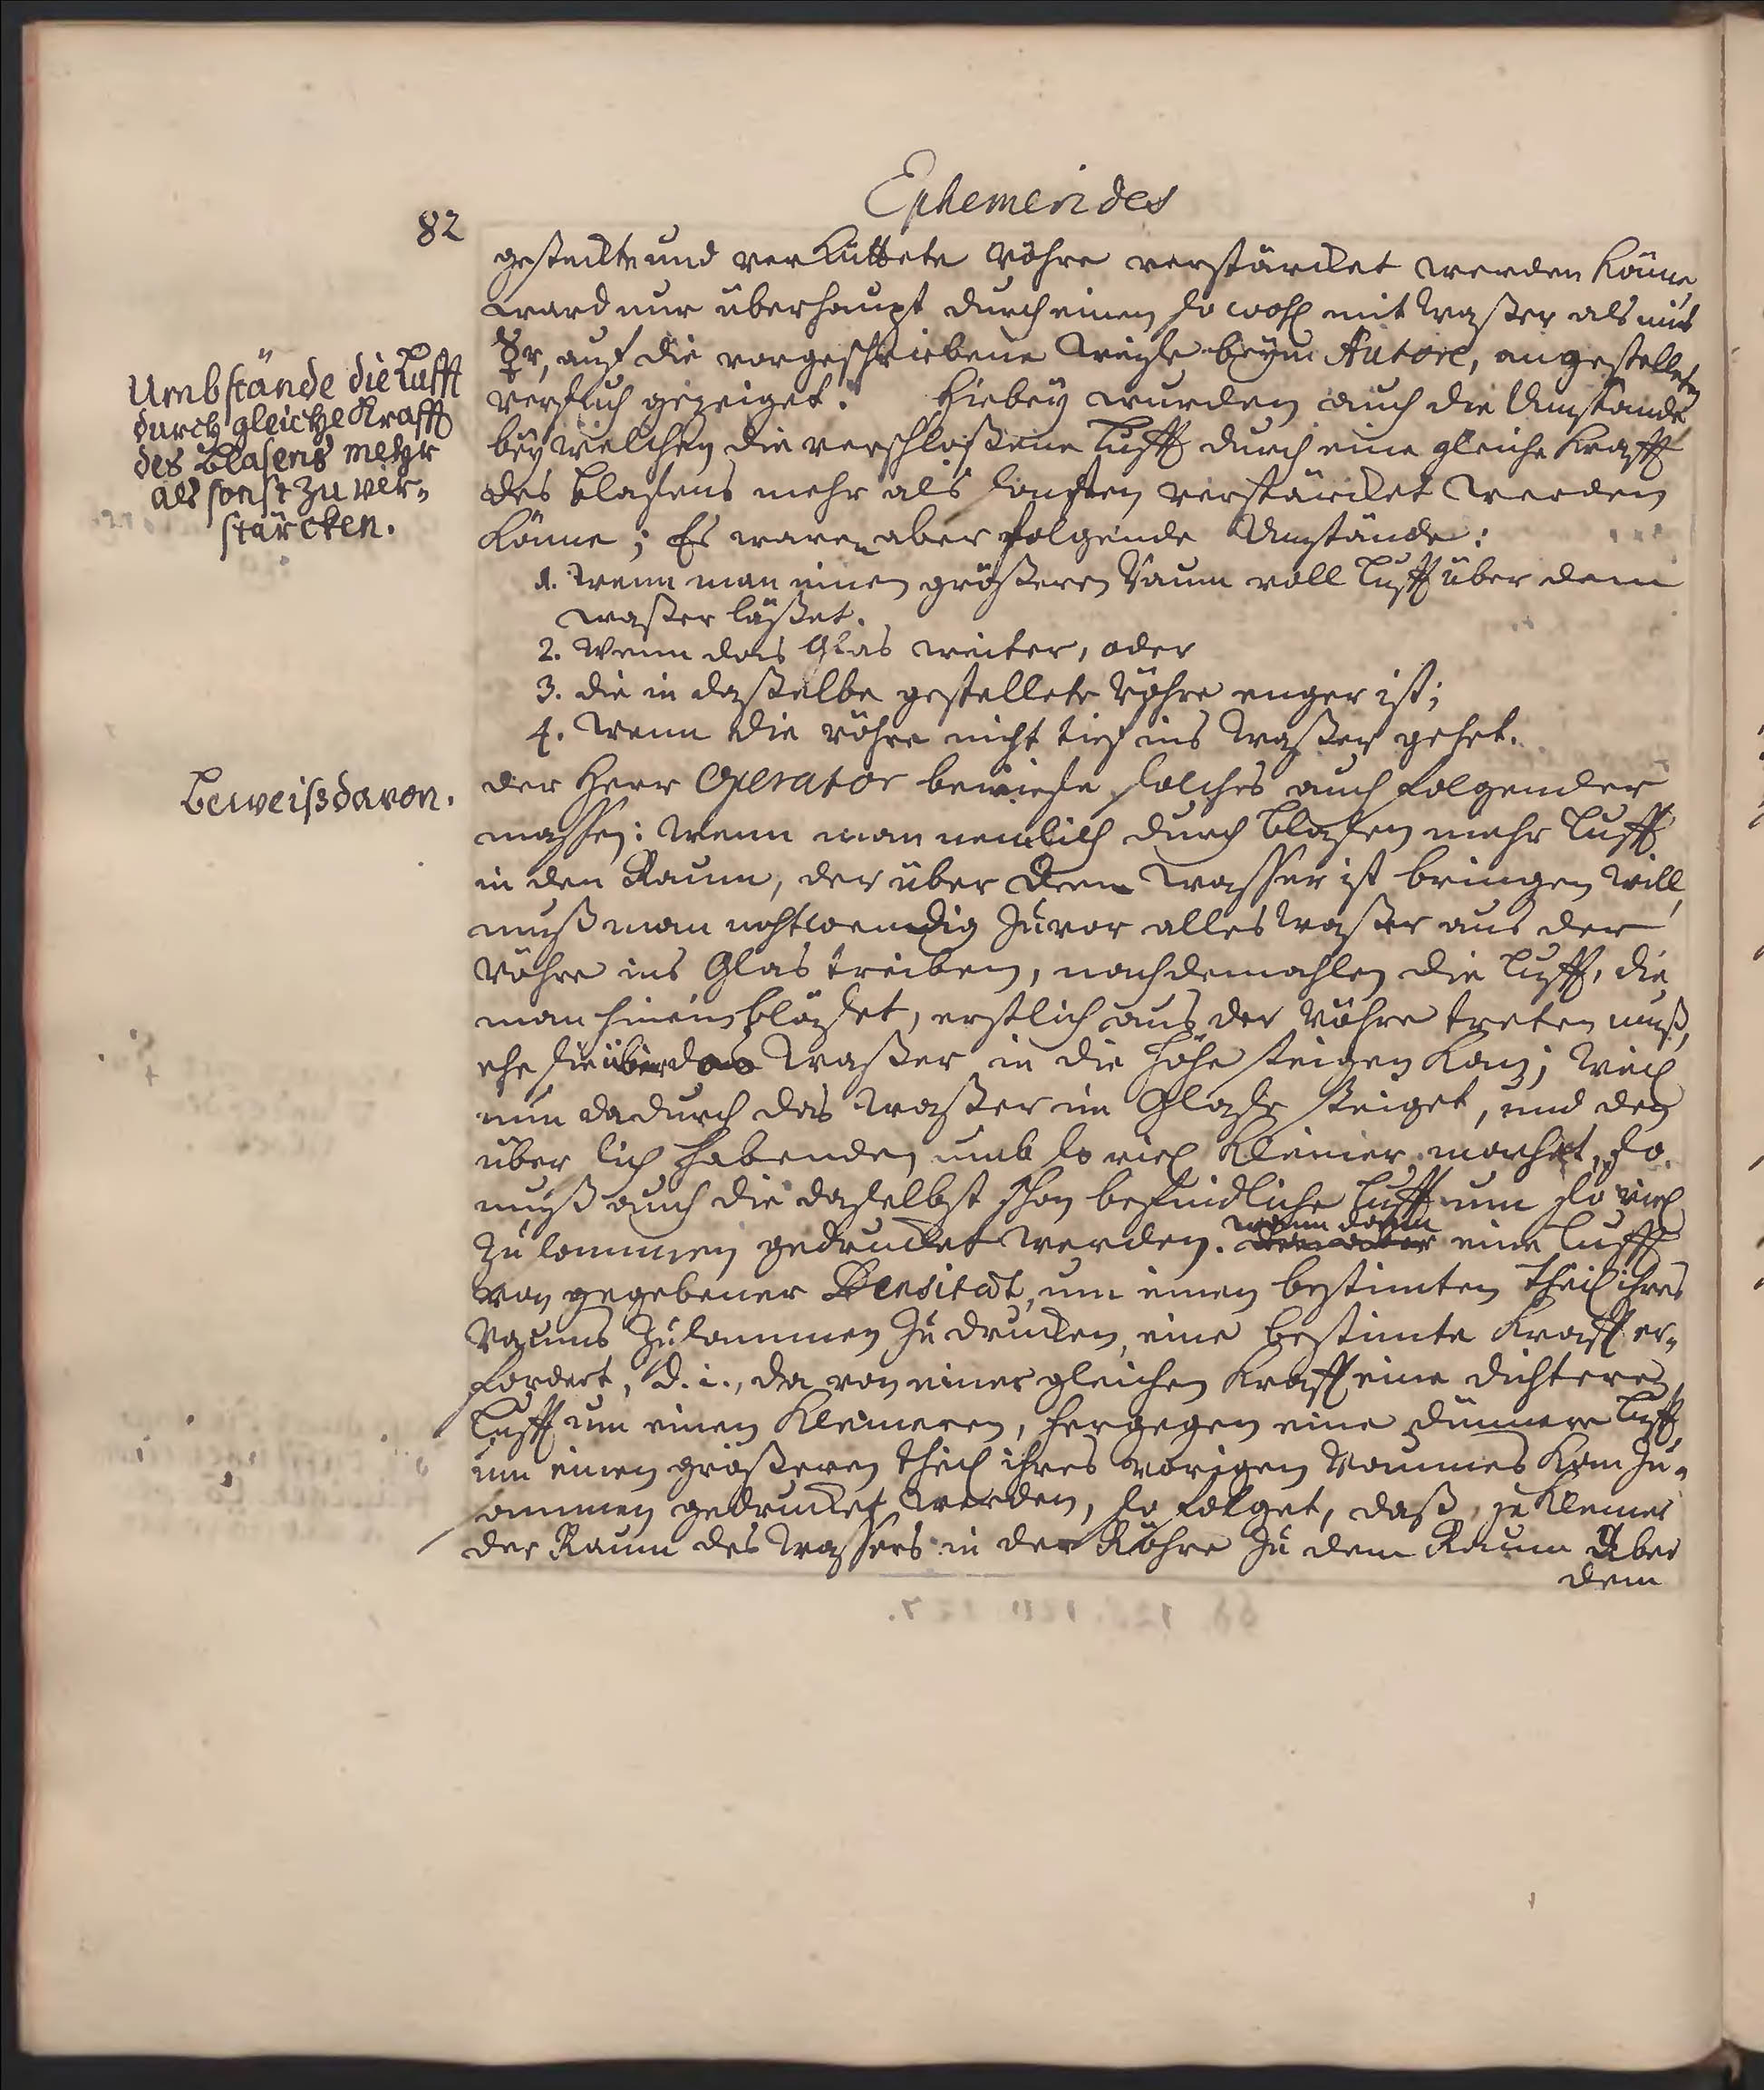 Ephemerides
82
gesteckte und verküttete Röhre verstärcket werden könne
ward nur überhaupt durch einen so wohl mit Waßer als mit
☿r, auf die vorgeschriebene Weise beym Autore, angestelleten
Versuch gezeiget. Hiebey wurden auch die Umstände
bey welchen die verschloßene Lufft durch eine gleiche Krafft
des Blasens mehr als sonsten verstärcket werden
könne; Es waren aber folgende Umstände:
Umbstände die Lufft
durch gleiche Krafft
des Blasens mehr
als sonst zu ver-
stärcken.
1. Wenn man einen größeren Raum voll Lufft über dem
Waßer läßet.
2. Wenn das Glas weiter, oder
3. die in daßelbe gestellete Röhre enger ist;
4. Wenn die Röhre nicht tief ins Waßer gehet.
Beweiß davon.
der Herr Operator bewiese solches auch folgender
massen: Wenn man nemlich durch Blasen mehr Lufft
in den Raum, der über dem Wasser ist bringen will,
muß man nohtwendig zuvor alles Waßer aus der
Röhre ins Glas treiben, nachdemahlen die Lufft, die
man hinein bläset, erstlich aus der Röhre treten muß,
ehe sie über das Waßer in die Höhe steigen kan; Weil
nun dadurch das Waßer im Glase steiget, und den
über sich habenden umb so viel kleiner machet, so
muß auch die daselbst schon befindliche Lufft um so viel
zusammen gedrucket werden. wenn dann eine Lufft
von gegebener Densität, um einen bestimten Theil ihres
Raums zusammen zu drucken, eine bestimte Krafft er-
fordert, d. i., da von einer gleichen Krafft eine dichtere
Lufft um einen kleineren, hergegen eine dünnere Lufft
um einen größeren Theil ihres vorigen Raumes kan zu-
sammen gedrucket werden, so folget, daß, je kleiner
der Raum des Wassers in der Röhre zu dem Raum über
dem